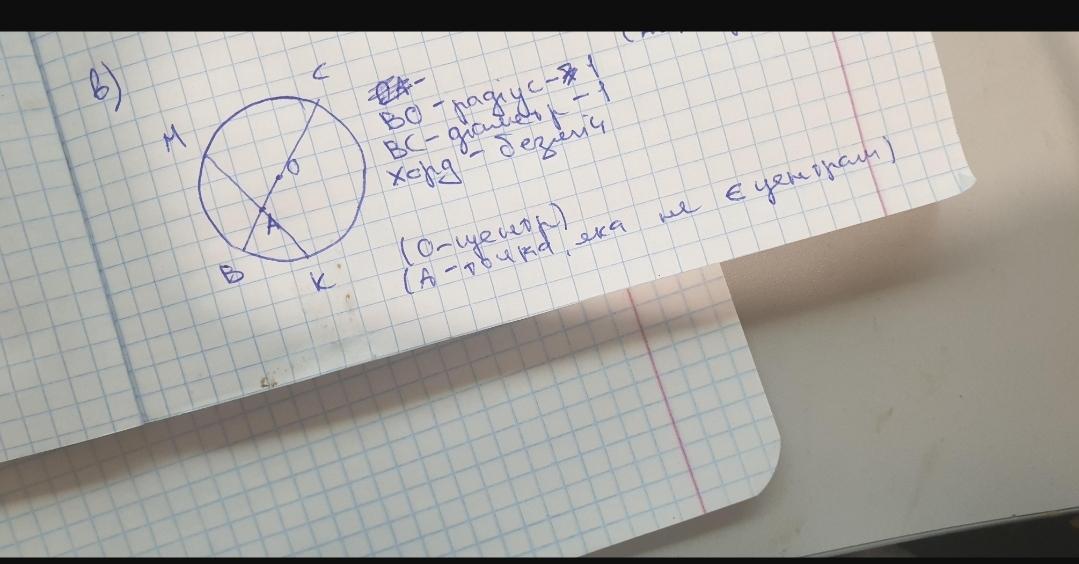 в)
C
M
O
A
B
K
BO - радіус - 1
BC - діаметр - 1
хорд - безліч
(O - центр)
(A - точка, яка не є центром)